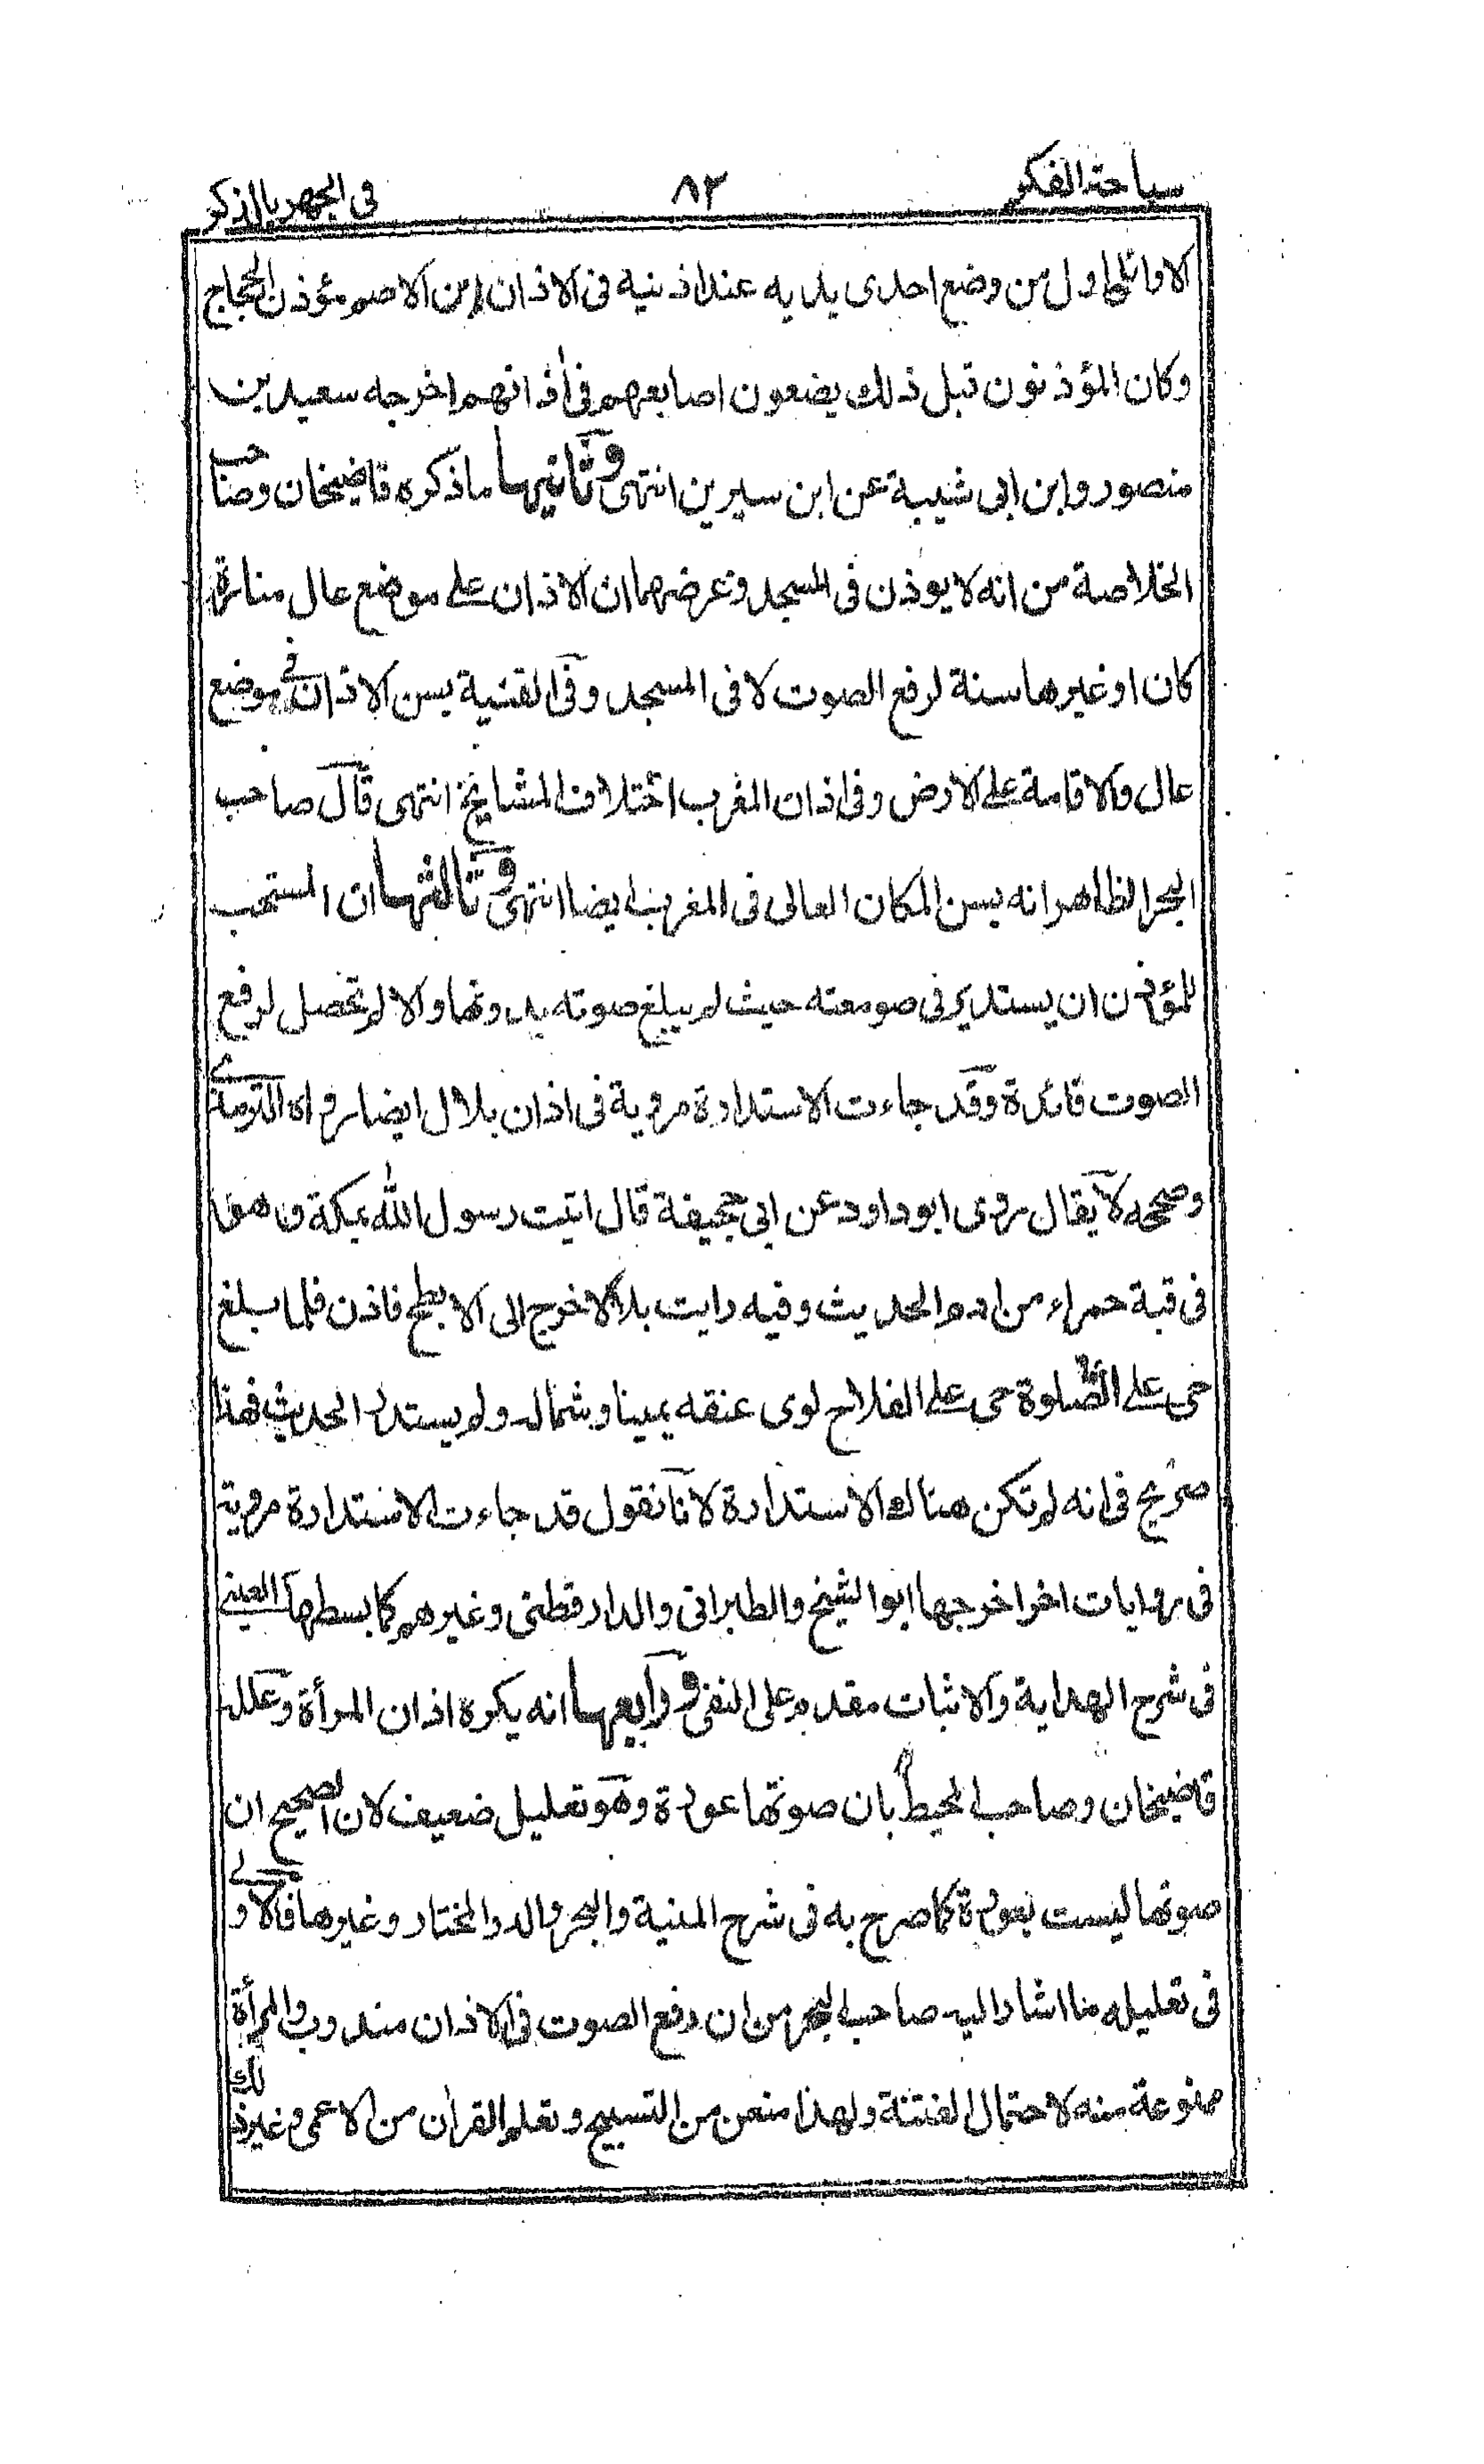 سباحة الفكر ٨٢ فى الجهر بالذكر
الاوائل اول من وضع احدى يديه عند اذنيه فى الاذان ابن الاصم مؤذن الحجاج
وكان المؤذنون قبل ذلك يضعون اصابعهم فى أذانهم اخرجه سعيد بن
منصور وابن ابى شيبة عن ابن سيرين انتهى وثانيها ما ذكره قاضيخان وصاحب
الخلاصة من انه لا يوذن فى المسجد وغرضهما ان الاذان على موضع عال منارة
كان او غيرها سنة لرفع الصوت لا فى المسجد وفى القنية يسن الاذان فى موضع
عال والاقامة على الارض وفى اذان المغرب اختلاف المشايخ انتهى قال صاحب
البحر الظاهر انه يسن المكان العالى فى المغرب ايضا انتهى وثالثها ان المستحب
للمؤذن ان يستدير فى صومعته حيث لم يبلغ صوته بدونها والا لم تحصل لرفع
الصوت فائدة وقد جاءت الاستدارة مروية فى اذان بلال ايضا رواه الترمذى
وصححه لا يقال روى ابو داود عن ابى جحيفة قال اتيت رسول الله بمكة وهو
فى قبة حمراء من ادم الحديث وفيه رايت بلالا خرج الى الابطح فاذن فلما بلغ
حى على الصلوة حى على الفلاح لوى عنقه يمينا وشمالا ولم يستدر الحديث فهذا
صريح فى انه لم تكن هنالك الاستدارة لانا نقول قد جاءت الاستدارة مروية
فى روايات اخر اخرجها ابو الشيخ والطبرانى والدارقطنى وغيرهم كما بسطها العينى
فى شرح الهداية والاثبات مقدم على النفى ورابعها انه يكره اذان المرأة وعلله
قاضيخان وصاحب المحيط بان صوتها عورة وهو تعليل ضعيف لان الصحيح ان
صوتها ليست بعورة كما صرح به فى شرح المنية والبحر والدر المختار وغيرها فالاولى
فى تعليله ما اشار اليه صاحب البحر من ان رفع الصوت فى الاذان مندوب والمرأة
ممنوعة منه لاحتمال الفتنة ولهذا منعن من التسبيح وتعلم القران من الاعمى وغير ذلك